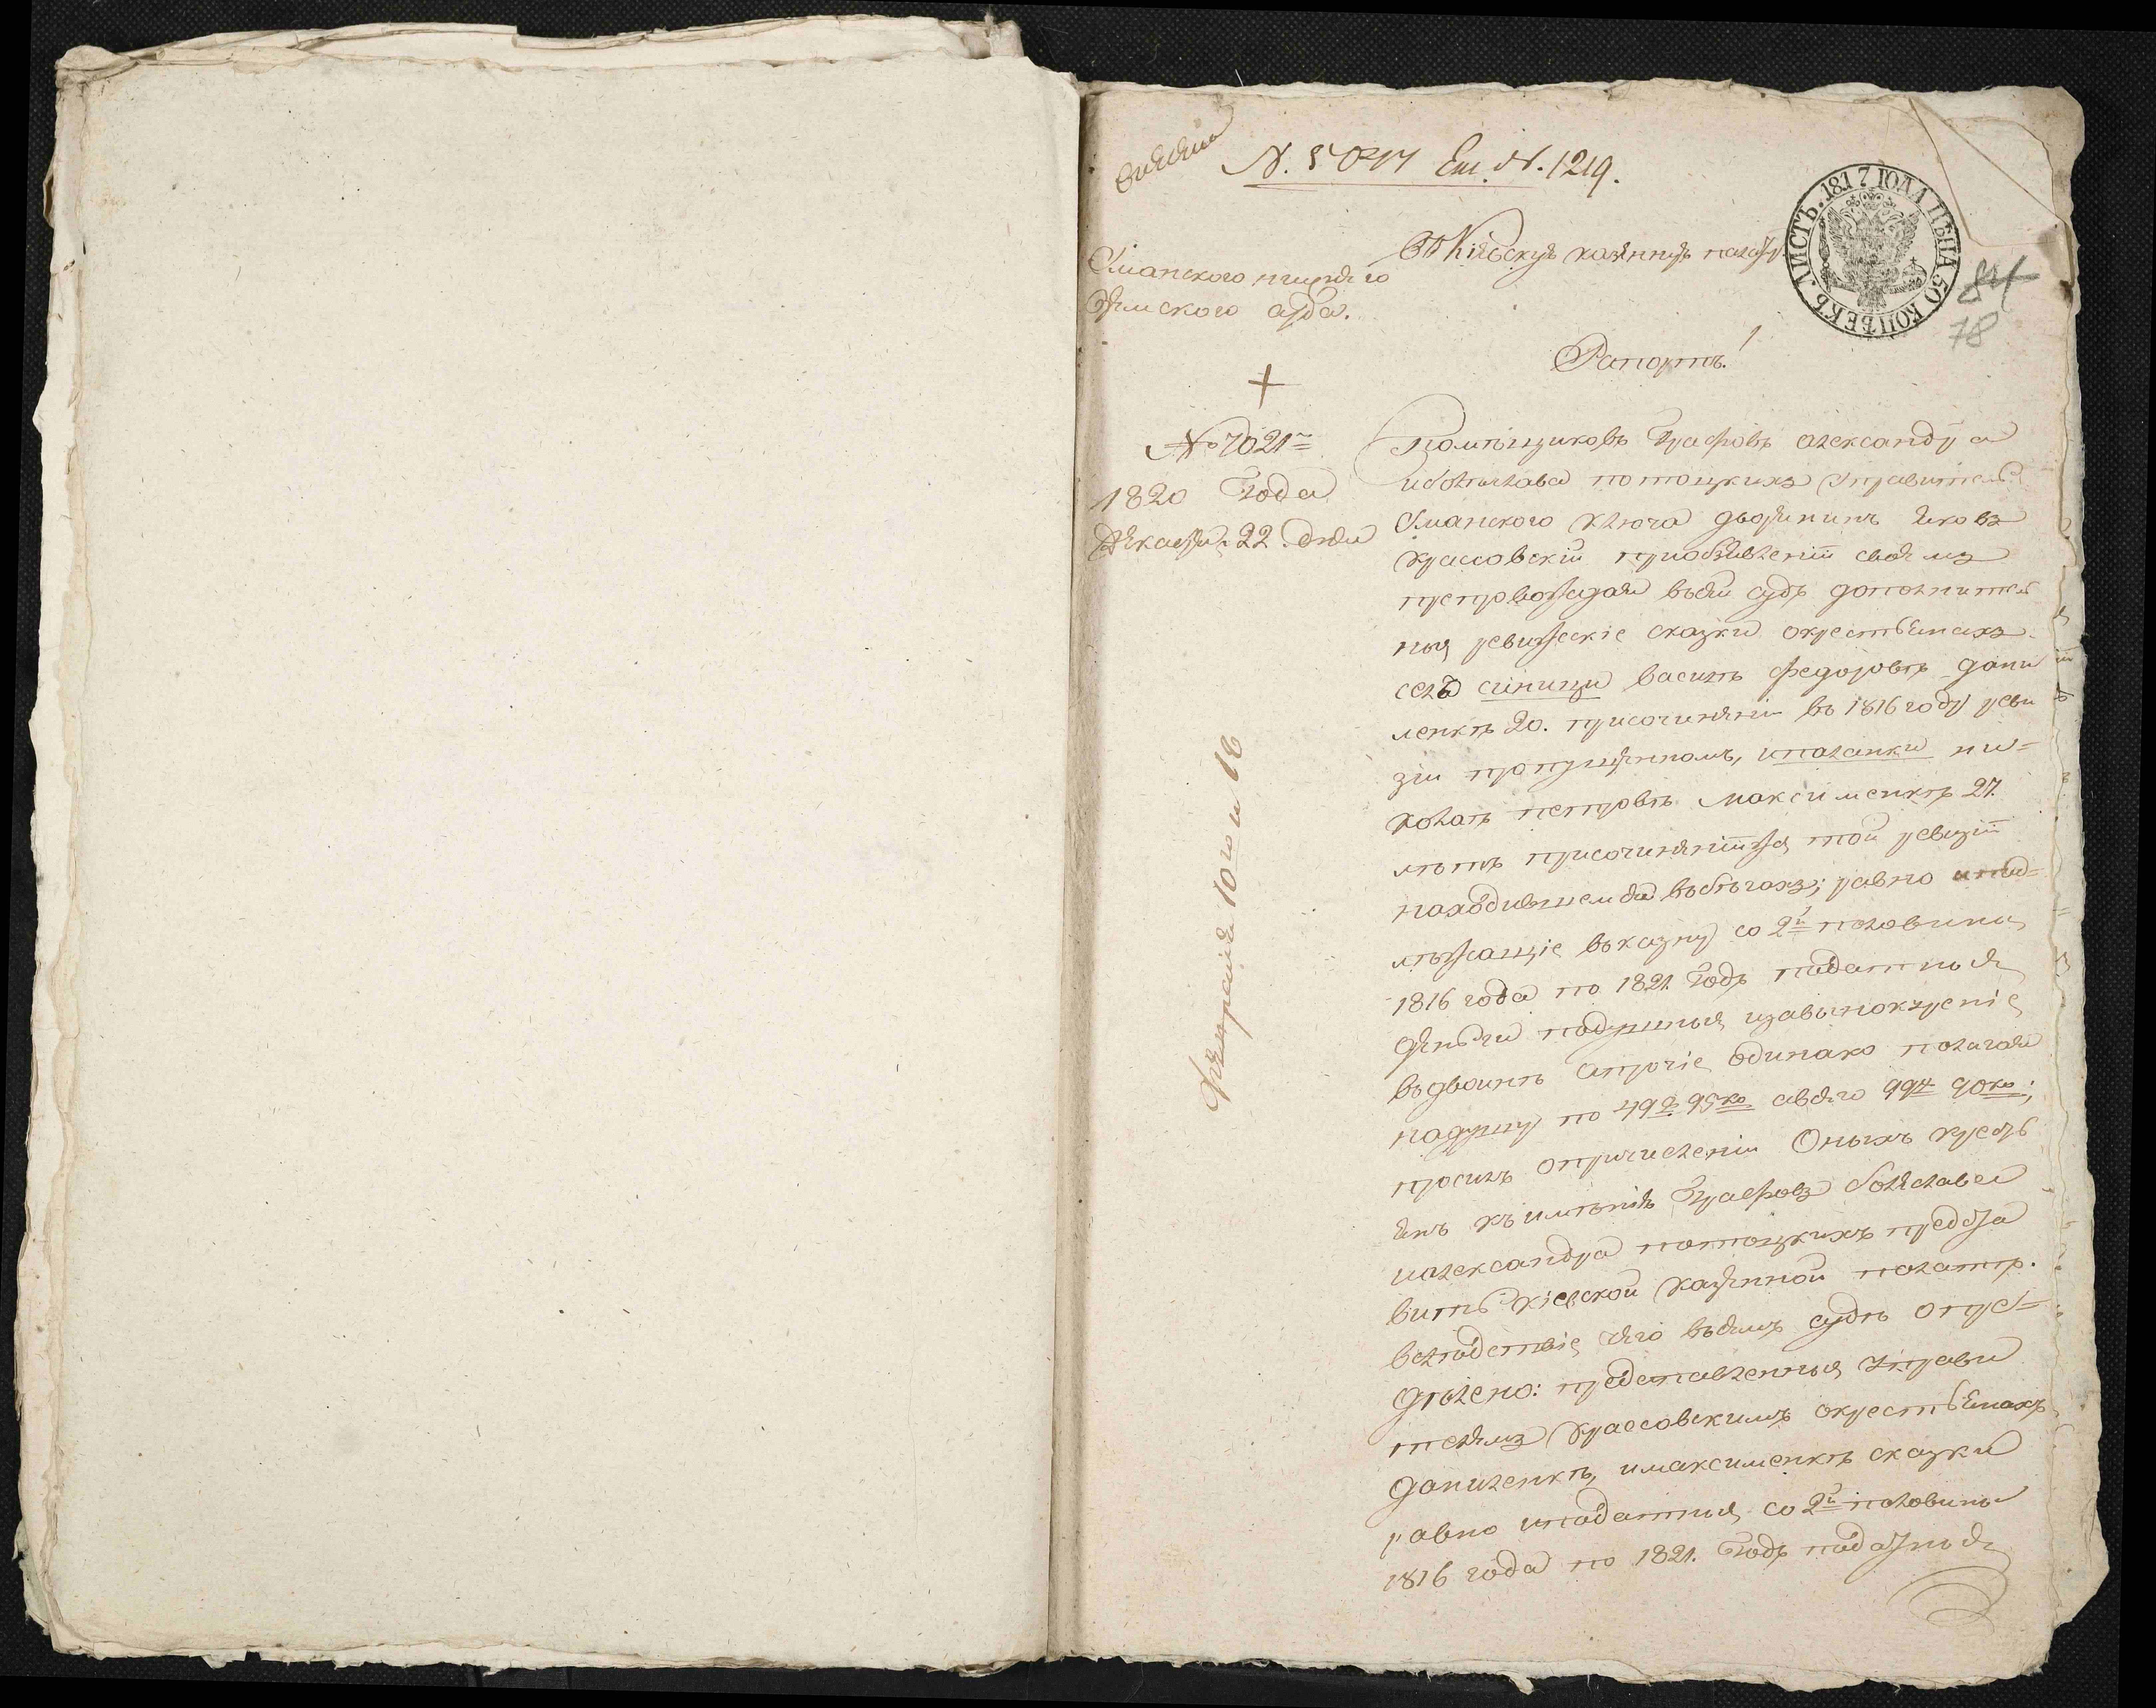 N. 5077 Ст. N. 1219.
ЛИСТЪ. 1817 ГОДА ЦѢНА 50 КОПѢЕКЪ
84
78
Въ Кіевскую казенную палату
Уманского нижнего
земского суда.
Рапортъ!
№ 7021
1820 Года
Декабря 22. дня
Февраля 10го и 18
Помѣщиковъ Графовъ александра
и болеслава потоцкихъ Управитель
Уманского ключа дворянинъ яковъ
Крассовскій приобъявленіи своемъ
препровождая въсей судъ дополнитель
ныя ревижскіе сказки окрестьянахъ
села синици василѣ федоровѣ дани
ленкѣ 20. присочиненіи въ 1816 году реви
зіи пропущенномъ, ипаланки ни=
колаѣ петровѣ Максименкѣ 27.
лѣтъ присочиненіижъ той ревизіи
находившемся въбѣгахъ; равно и над=
лѣжащіе въказну со 2й половины
1816 года по 1821. Годъ податные
деньги подушныя изавынокуреніе
вдвоинѣ и прочіе одинако полагая
надушу по 49 р 95 ко авсего 99 р 90 ко;
проситъ опричисленіи Оныхъ крестъ
янъ къимѣнію Графовъ болеслава
иалександра потоцкихъ предста
вить кіевской казенной палатѣ.
вслѣдствіе чего въсемъ судѣ опре=
дѣлено: представленныя управи
телемъ Крассовскимъ окрестьянахъ
даниленкѣ, имаксименкѣ сказки
равно иподатныя со 2й половины
1816 года по 1821. Годъ податные